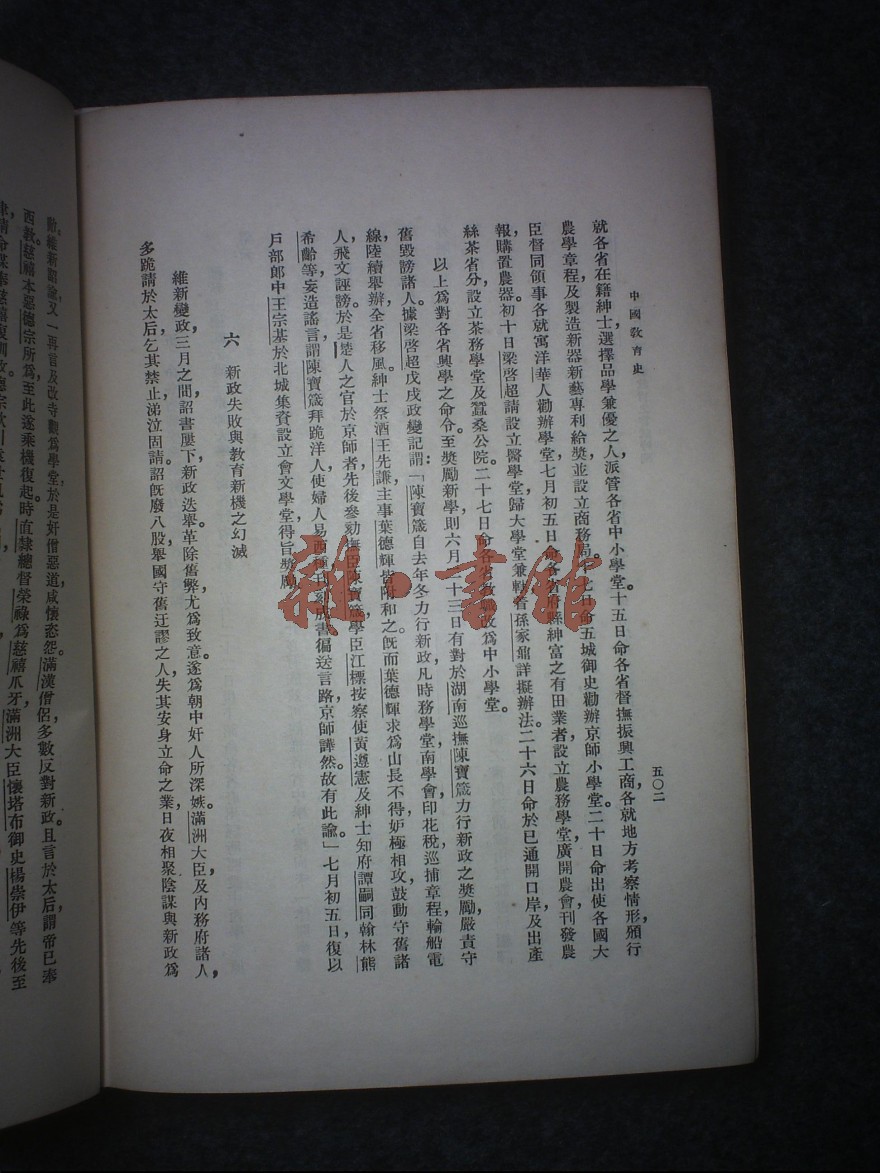 中國教育史
五〇二
就各省在籍紳士選擇品學兼優之人，派管各省中小學堂。十五日命各省督撫振興工商，各就地方考察情形，頒行
農學章程及製造新器新藝專利給獎，並設立商務局。日命五城御史勸辦京師小學堂。二十日命出使各國大
臣督同領事各就寓洋華人勸辦學堂七月初五日命各省府縣紳富之有田業者設立農務學堂，廣開農會，刊發農
報，購置農器。初十日梁啓超請設立醫學堂，歸大學堂兼轄，着孫家鼐詳擬辦法。二十六日命於已通開口岸及出產
絲茶省分設立茶務學堂及蠶桑公院。二十七日命各省改爲中小學堂。
以上爲對各省興學之命令。至獎勵新學則六月二十三日有對於湖南巡撫陳寶箴力行新政之獎勵，嚴責守
舊毀謗諸人。據梁啓超戊戌政變記謂：「陳寶箴自去年冬力行新政，凡時務學堂，南學會，印花稅，巡捕章程，輪船電
線，陸續舉辦，全省移風，紳士祭酒王先謙，主事葉德輝皆附和之。旣而葉德輝求爲山長不得，妒極相攻，鼓動守舊諸
人，飛文誣謗，於是楚人之官於京師者，先後參劾撫臣陳寶箴，學臣江標，按察使黃遵憲及紳士知府譚嗣同，翰林熊
希齡等，妄造謠言，謂陳寶箴拜跪洋人，使婦人易西種，刊刻成書，徧送言路，京師譁然。故有此諭。」七月初五日，復以
戶部郎中王宗基於北城集資設立會文學堂，得旨獎勵。
六　新政失敗與教育新機之幻滅
維新變政，三月之間，詔書屢下，新政迭舉。革除舊弊，尤爲致意。遂爲朝中奸人所深嫉。滿洲大臣及內務府諸人，
多跪請於太后，乞其禁止，涕泣固請。詔旣廢八股，舉國守舊迂謬之人，失其安身立命之業，日夜相聚，陰謀與新政爲
維新，又一再言及改寺觀爲學堂，於是奸僧惡道，咸懷恣怨。滿漢僧侶，多數反對新政，且言於太后，謂帝已奉
西教。慈禧本惡德宗所爲，至此遂乘機復起。時直隸總督榮祿爲慈禧爪牙，滿洲大臣懷塔布，御史楊崇伊等先後至
雜·書館